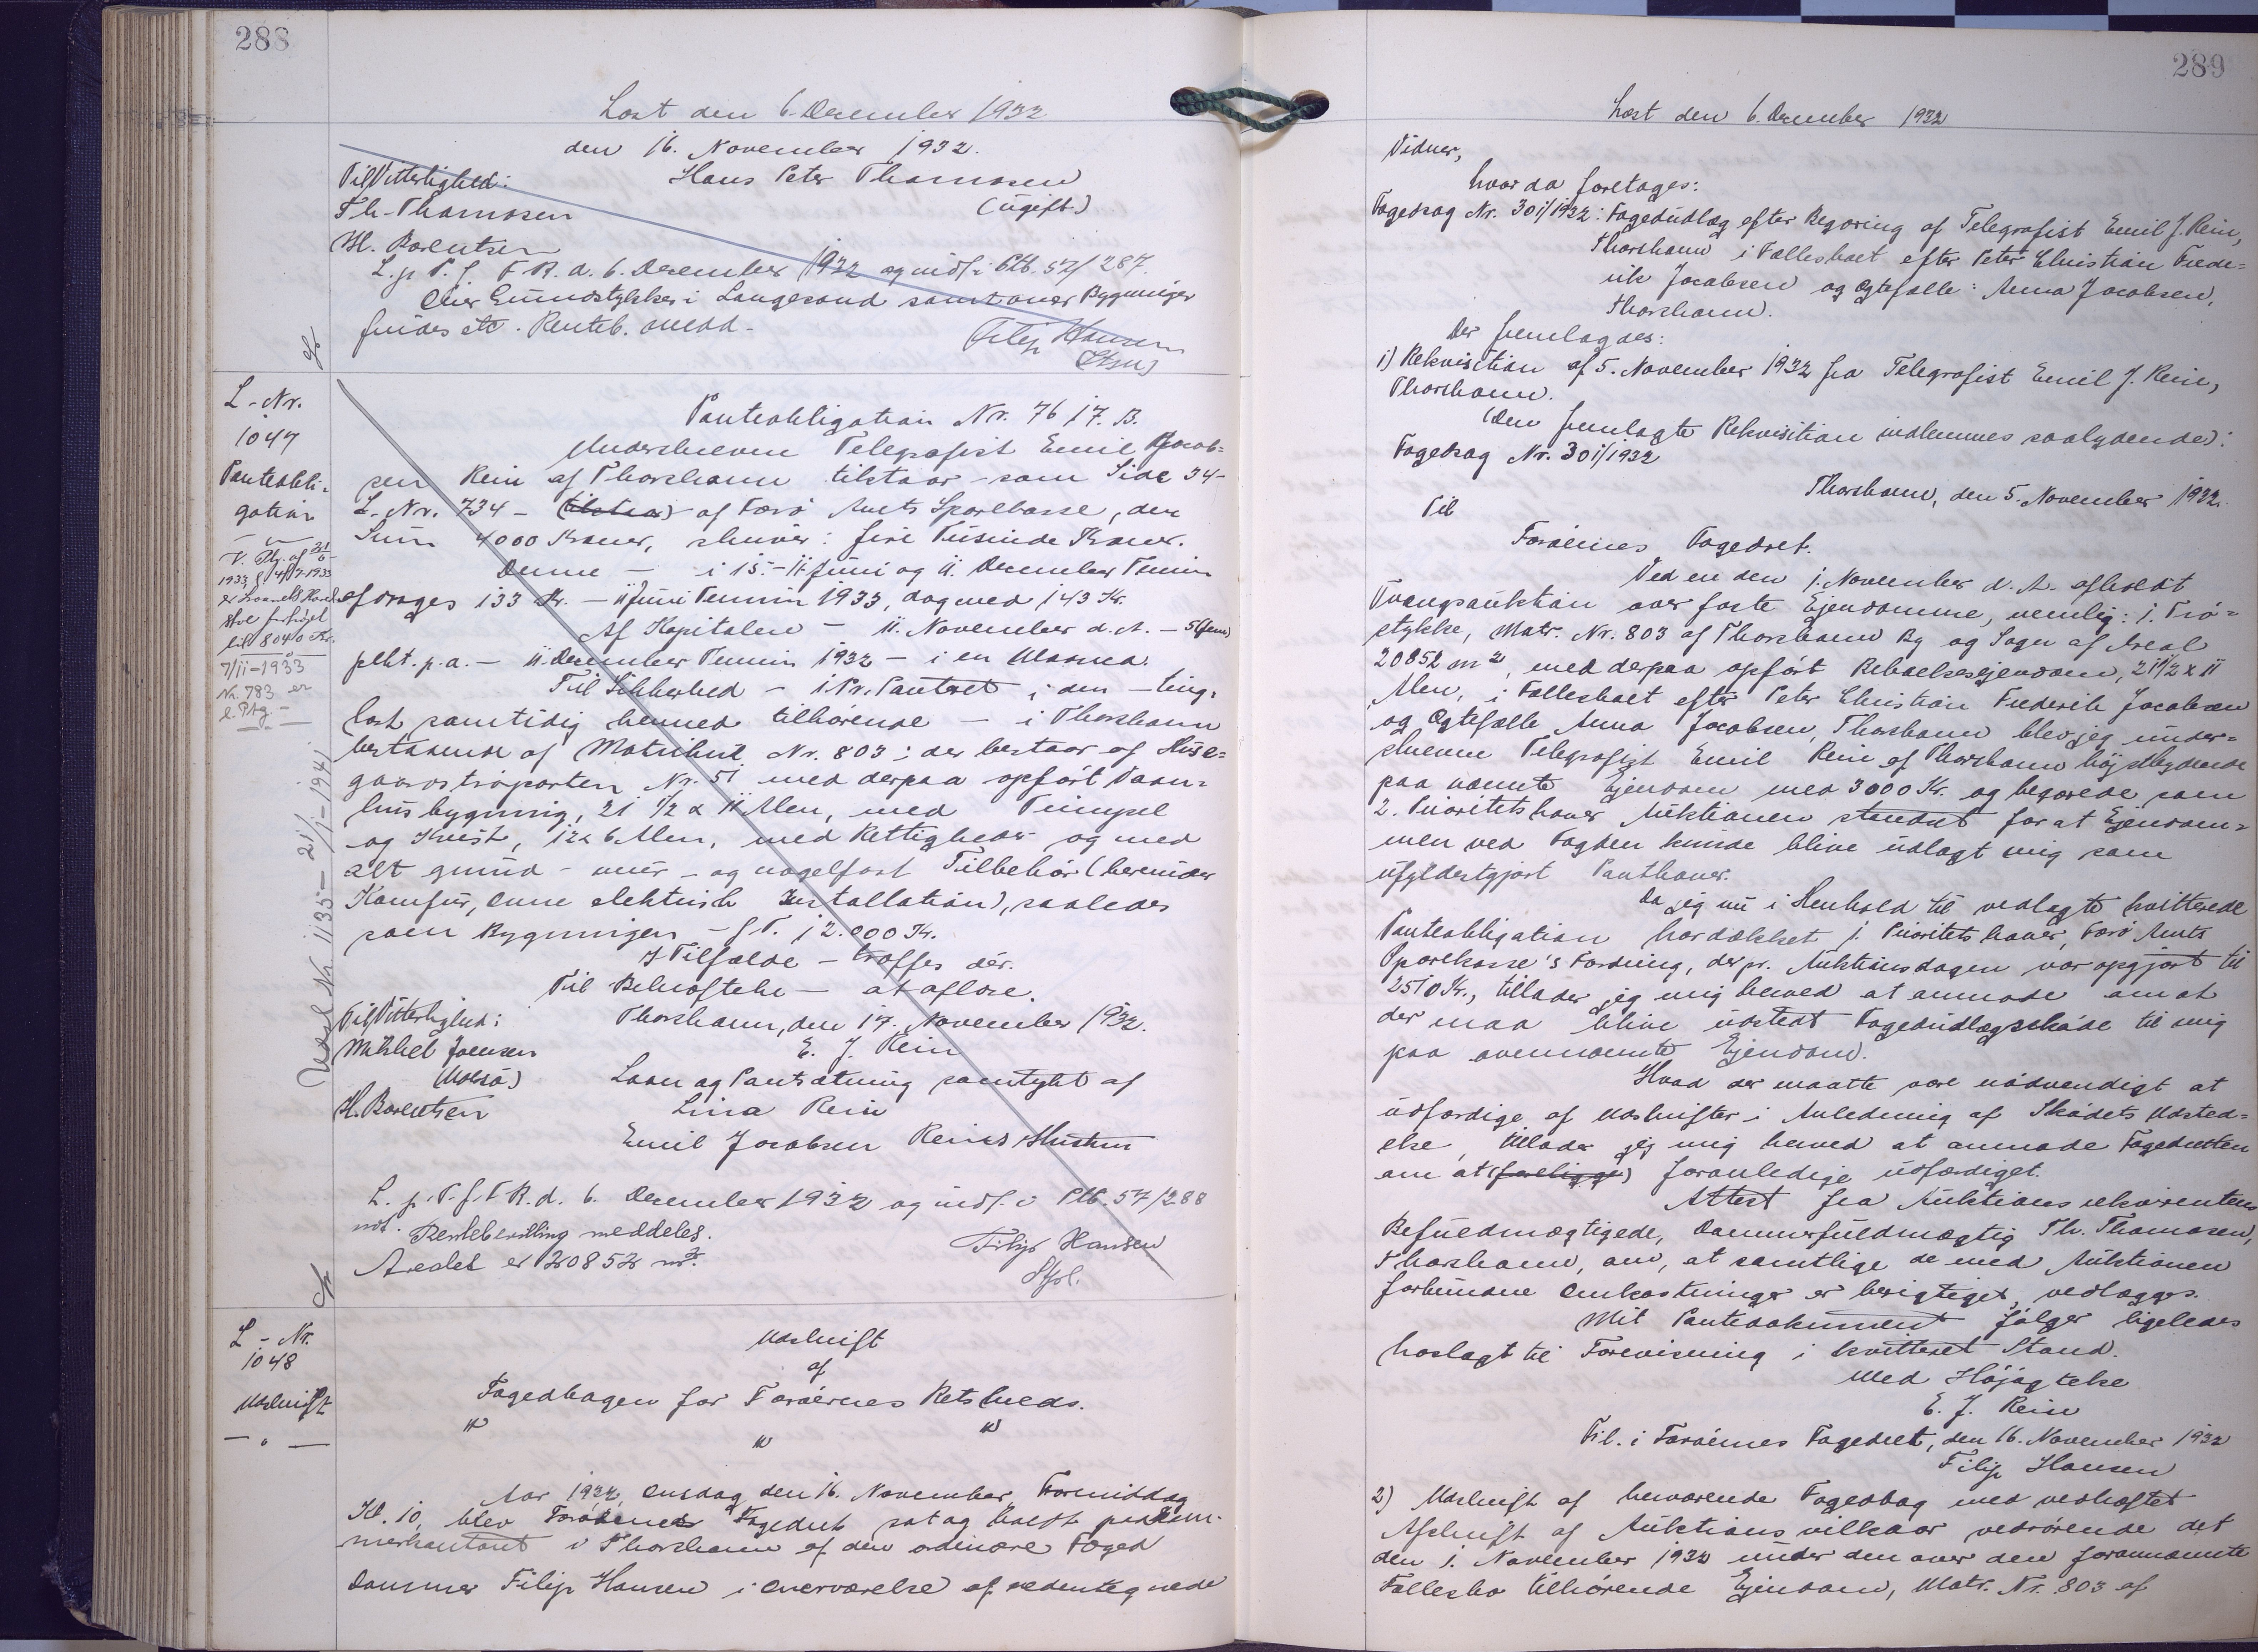 288
Læst den 6. December 1932
den 16. November 1932.
Til Vitterlighed:
Hans Peter Thomsen
Th. Thomsen
(ugift.)
H. Barentsen
L. p. T. f. F. R. d. 6. December 1932 og indf. i Ptb. 57/287.
finder etc. Renteb. medd.
Filip Hansen
L-Nr.
1047
Panteobli-
gation
Panteobligation Nr. 76 17. B.
Underskrevne Telegrafist Emil Jacob-
sen Rein af Thorshavn tilstaar - som Side 34 -
L. Nr. 734 - (tilstaa) af Færø Amts Sparekasse, den
Sum 4000 Kroner, skriver: fire Tusinde Kroner.
Denne - i 15. - 11. Juni og 11. December Termin
er
1933
til 8040 Kr.
7/11-1933
Nr. 783 er
afdrages 133 Kr. - 11 Juni Termin 1933, dog med 143 Kr.
Af Kapitalen - 11. November d. A. - 5 (fem)
pCt. p. a. - 11. December Termin 1932 - i en
Til Sikkerhed - 1. Pr. Panteret i den - ting-
læst samtidig hermed tilhørende - i Thorshavn
bestaaende af Matrikul Nr. 803; der bestaar af Huse-
gaardstraparten Nr. 51 med derpaa opført Vaan-
husbygning, 21 1/2 x 11 Alen, med
og Kvist, 12 x 6 Alen, med Rettigheder og med
alt grund- mur- og nagelfast Tilbehør (herunder
Komfur, Ovne elektrisk Installation), saaledes
som Bygningen - f. T. 12.000 Kr.
I Tilfælde - træffes dér.
Til Bekræftelse - at aflæse.
Til Vitterlighed:
Thorshavn, den 17. November 1932.
Mikkel Joensen
E. J. Rein
(Nolsø)
Laan og Pantsætning samtykt af
H. Barentsen
Lina Rein
Emil Jacobsen Reins Hustru
L. p. T. f. F. R. d. 6. December 1932 og indf. i Ptb. 57/288
not. Rentebevilling meddeles.
Arealet er 20852 m².
Filip Hansen
L-Nr.
1048
Udskrift
Udskrift
af
Fogedbogen for Færøernes Retskreds.
Aar 1932, Onsdag den 16. November Formiddag
Kl. 10, blev Færøernes Fogedret sat og holdt paa Dom-
merkontoret i Thorshavn af den ordinære Foged
Dommer Filip Hansen i Overværelse af nedentegnede
289
Læst den 6. December 1932
Vidner,
hvor da foretages:
Fogedsag Nr. 301/1932: Fogedudlæg efter Begæring af Telegrafist Emil J. Rein,
Thorshavn i Fællesboet efter Peter Christian Frede-
rik Jacobsen og Ægtefælle: Anna Jacobsen,
Thorshavn.
Der fremlagdes:
1) Rekvisition af 5. November 1932 fra Telegrafist Emil J. Rein,
Thorshavn.
(Den fremlagte Rekvisition indlemmes saalydende):
Fogedsag Nr. 301/1932
Thorshavn, den 5. November 1932.
Til
Færøernes Fogedret.
Ved en den 1. November d. A. afholdt
Tvangsauktion over faste Ejendomme, nemlig: 1. Trø-
stykke, Matr. Nr. 803 af Thorshavn By og Sogn af Areal
20852 m², med derpaa opført Beboelsesejendom, 21 1/2 x 11
Alen, i Fællesboet efter Peter Christian Frederik Jacobsen
og Ægtefælle Anna Jacobsen, Thorshavn blev jeg under-
skrevne Telegrafist Emil Rein af Thorshavn højstbydende
paa nævnte Ejendom med 3000 Kr. og begærede som
2. Prioritetshaver Auktionen standset for at Ejendom-
men ved Fogden kunde blive udlagt mig som
ufyldestgjort Panthaver.
Da jeg nu i Henhold til vedlagte kvitterede
Panteobligation har dækket 1. Prioritetshaver, Færø Amts
Sparekasse's Fordring, der pr. Auktionsdagen var opgjort til
2510 Kr., tillader jeg mig herved at anmode om at
der maa blive udstedt Fogedudlægsskøde til mig
paa ovennævnte Ejendom.
Hvad der maatte være nødvendigt at
udfærdige af Udskrifter i Anledning af Skødets Udsted-
else, tillader jeg mig herved at anmode Fogedretten
om at foranledige udfærdiget.
Attest fra Auktionsrekvirentens
Befuldmægtigede, Dommerfuldmægtig Th. Thomasen,
Thorshavn, om, at samtlige de med Auktionen
forbundne Omkostninger er berigtiget, vedlægges.
Mit Pantedokument følger ligeledes
hoslagt til Forevisning i kvitteret Stand.
Med Højagtelse
E. J. Rein
Frl. i Færøernes Fogedret, den 16. November 1932
Filip Hansen
2) Udskrift af herværende Fogedbog med vedhæftet
Afskrift af Auktionsvilkaar vedrørende det
den 1. November 1932 under den over den forannævnte
Fællesbo tilhørende Ejendom, Matr. Nr. 803 af